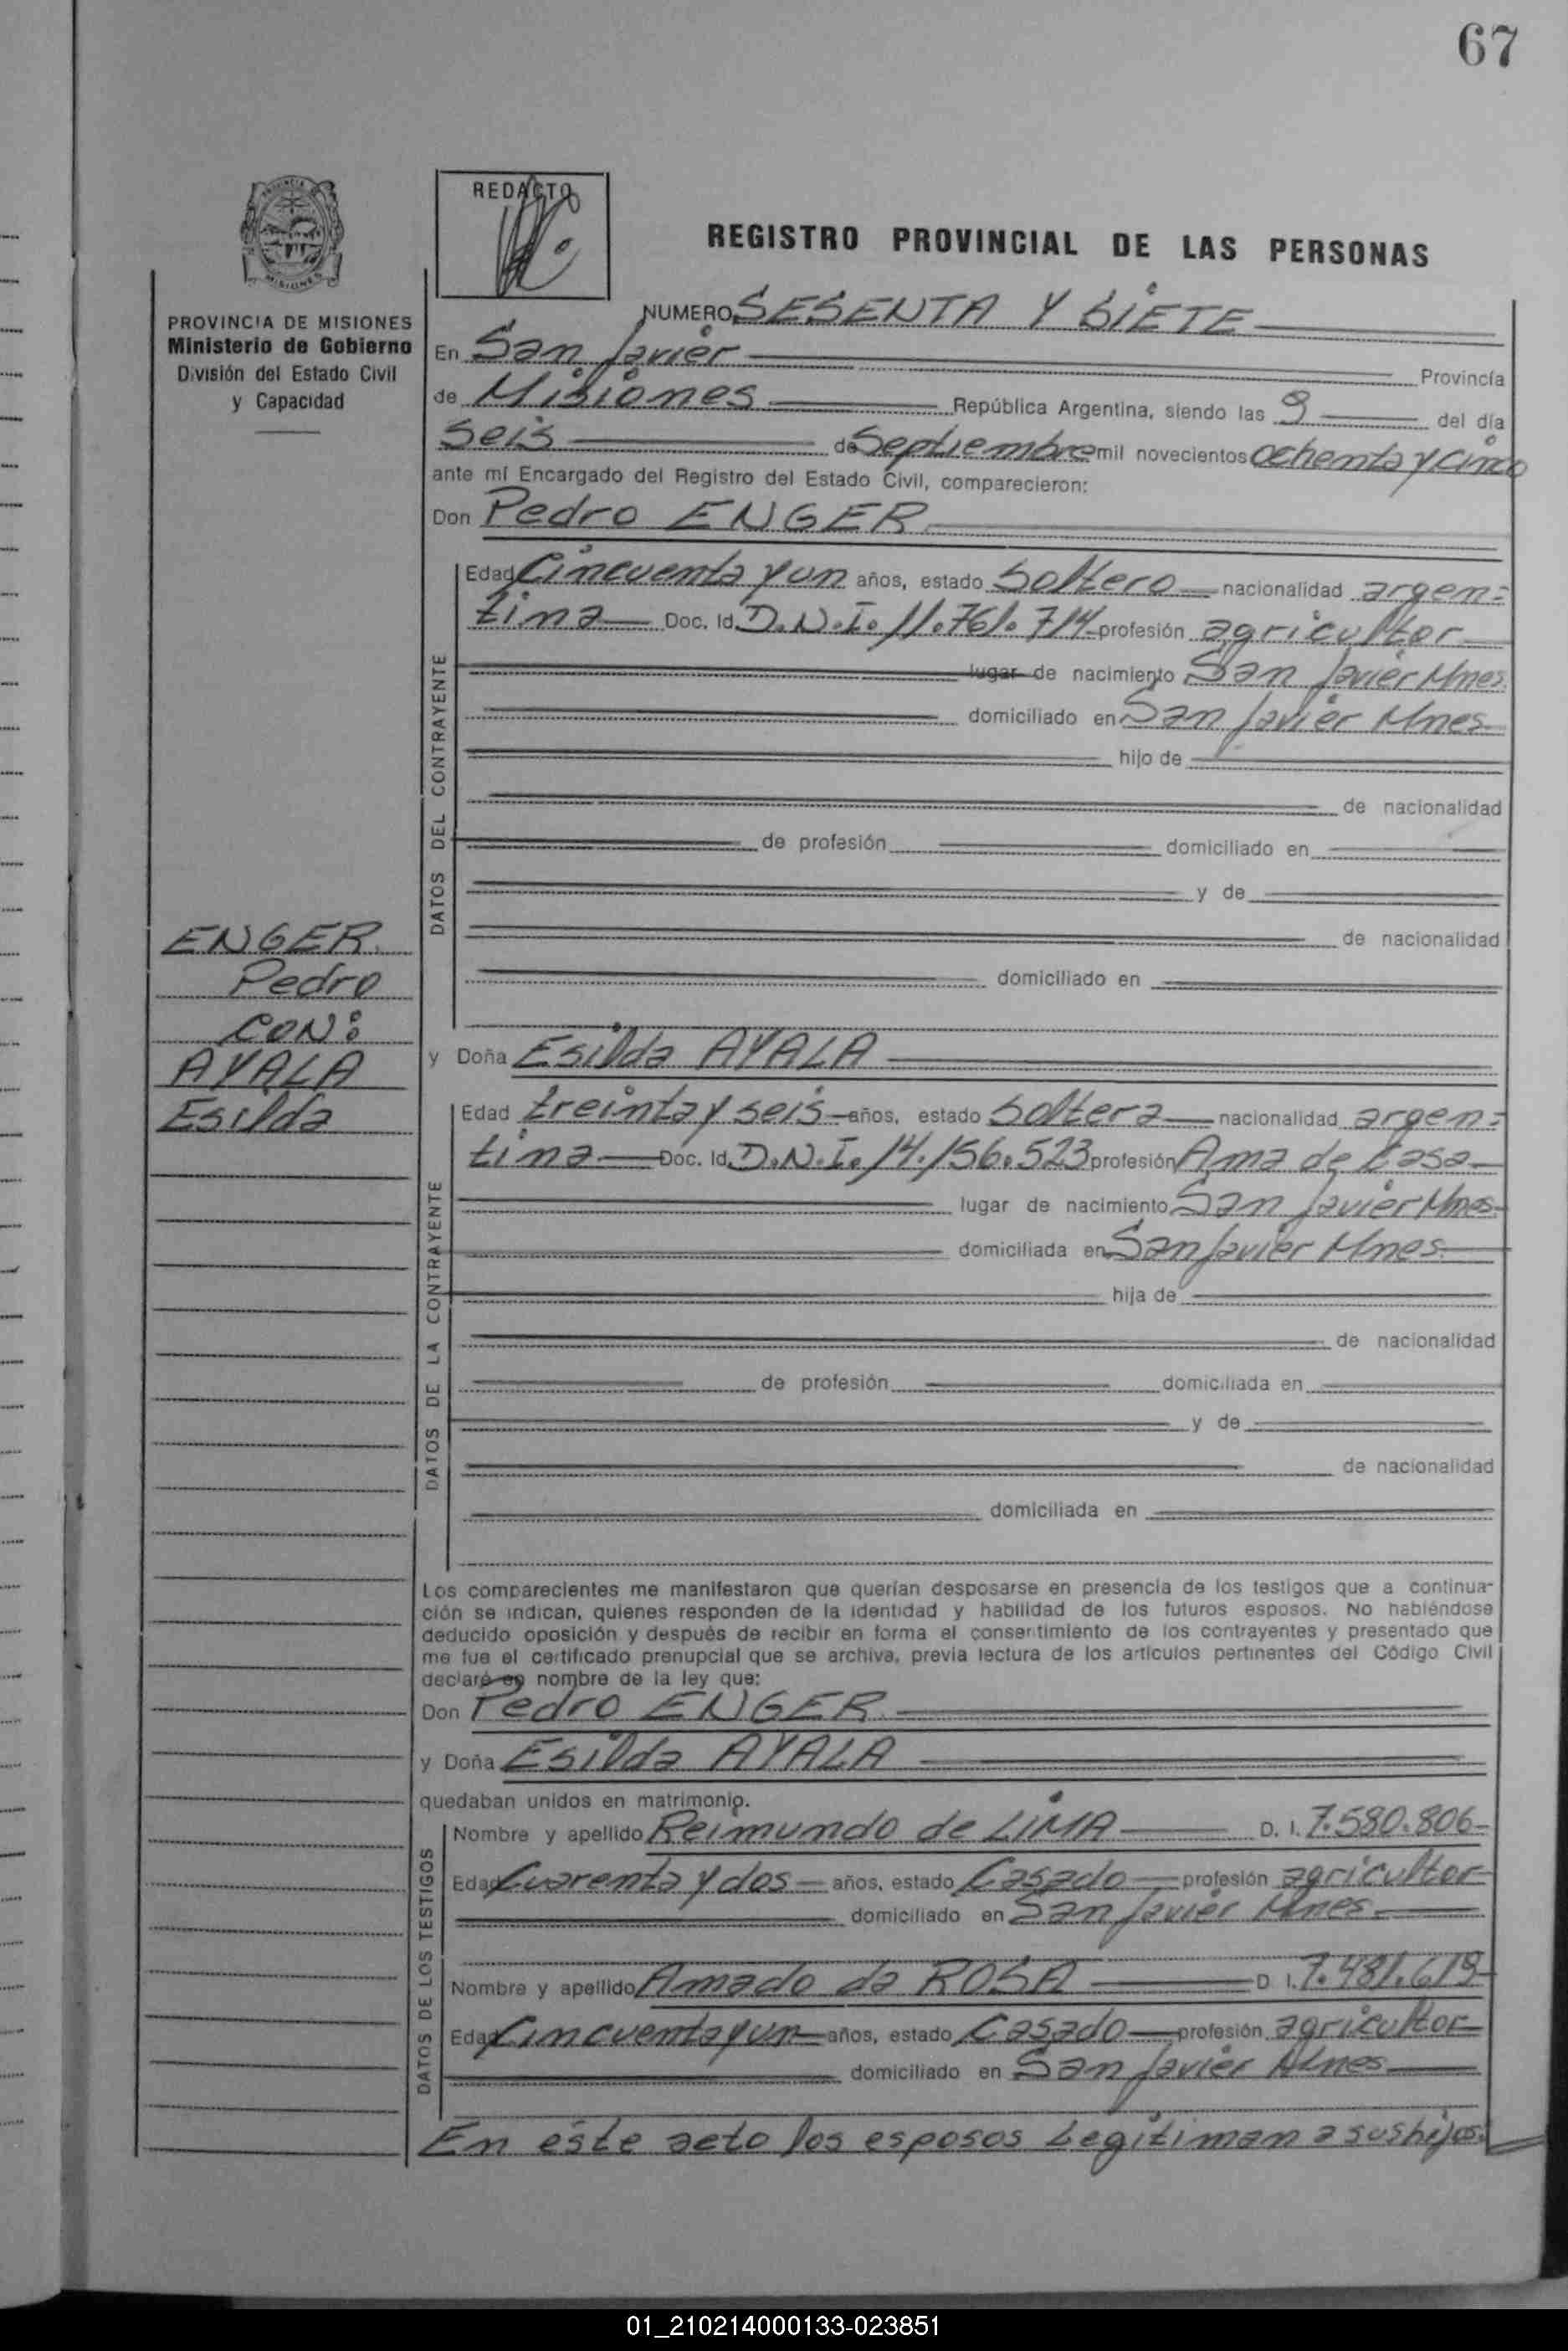 67
REDACTO
REGISTRO PROVINCIAL DE LAS PERSONAS
PROVINCIA DE MISIONES
Ministerio de Gobierno
División del Estado Civil
y Capacidad
NUMERO SESENTA Y SIETE
En San Javier Provincia
de Misiones República Argentina, siendo las 9 del día
seis de Septiembre mil novecientos ochenta y cinco
ante mí Encargado del Registro del Estado Civil, comparecieron:
Don Pedro ENGER
DATOS DEL CONTRAYENTE
Edad Cincuenta y un años, estado Soltero nacionalidad argen=
tina Doc. Id. D.N.I. 11.761.714 profesión agricultor
lugar de nacimiento San Javier Mnes.
domiciliado en San Javier Mnes
hijo de
de nacionalidad
de profesión domiciliado en
y de
de nacionalidad
domiciliado en
ENGER
Pedro
CON:
AYALA
Esilda
y Doña Esilda AYALA
DATOS DE LA CONTRAYENTE
Edad treinta y seis años, estado Soltera nacionalidad argen=
tina Doc. Id. D.N.I. 14.156.523 profesión Ama de Casa
lugar de nacimiento San Javier Mnes
domiciliada en San Javier Mnes.
hija de
de nacionalidad
de profesión domiciliada en
y de
de nacionalidad
domiciliada en
Los comparecientes me manifestaron que querían desposarse en presencia de los testigos que a continua-
ción se indican, quienes responden de la identidad y habilidad de los futuros esposos. No habiéndose
deducido oposición y después de recibir en forma el consentimiento de los contrayentes y presentado que
me fue el certificado prenupcial que se archiva, previa lectura de los artículos pertinentes del Código Civil
declaré en nombre de la ley que:
Don Pedro ENGER
y Doña Esilda AYALA
quedaban unidos en matrimonio.
DATOS DE LOS TESTIGOS
Nombre y apellido Reimundo de LIMA D. I. 7.580.806
Edad Cuarenta y dos años, estado Casado profesión agricultor
domiciliado en San Javier Mnes.
Nombre y apellido Amado da ROSA D I. 7.481.619
Edad Cincuenta y un años, estado Casado profesión agricultor
domiciliado en San Javier Mnes
En éste acto los esposos Legitiman a sus hijos.
01_210214000133-023851